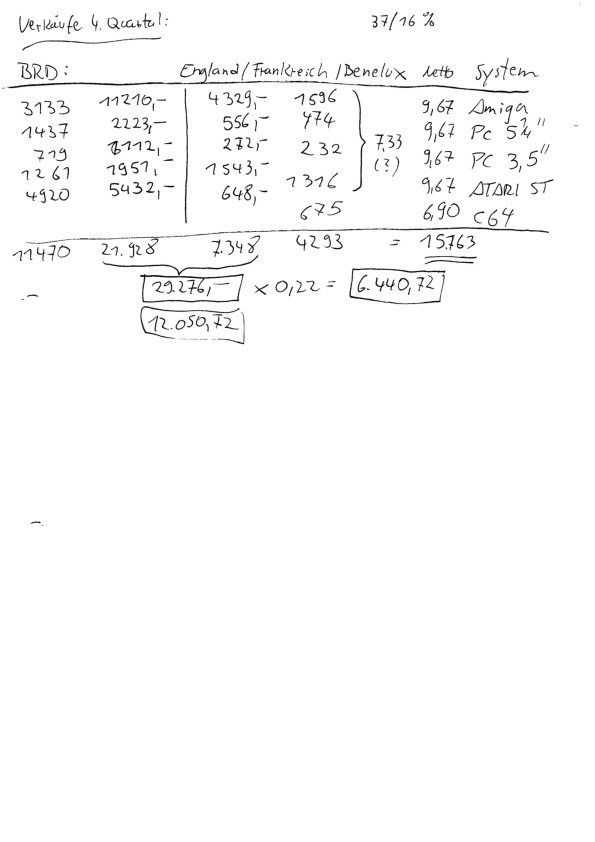 Verkäufe 4. Quartal: 37/16 %
BRD: England/Frankreich/Benelux netto System
3133 11210,- 4329,- 1596 9,67 Amiga
1437 2223,- 556,- 474 9,67 PC 5¼"
719 1112,- 272,- 232 7,33 (?) 9,67 PC 3,5"
1261 1951,- 1543,- 1316 9,67 ATARI ST
4920 5432,- 648,- 675 6,90 C64
11470 21.928 7.348 4293 = 15.763
29.276,- × 0,22 = 6.440,72
12.050,72